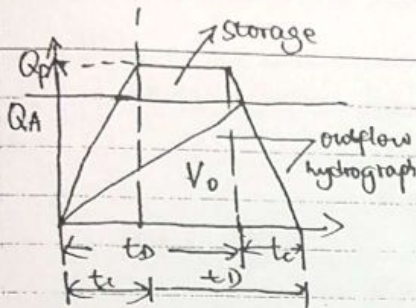 storage
Qp
QA
outflow
hydrograph
Vo
tD tc
tc tD